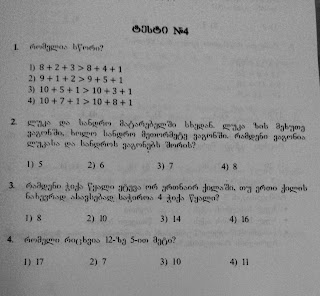 ტესტი №4
1. რომელია სწორი?
1) 8 + 2 + 3 > 8 + 4 + 1
2) 9 + 1 + 2 > 9 + 5 + 1
3) 10 + 5 + 1 > 10 + 3 + 1
4) 10 + 7 + 1 > 10 + 8 + 1
2. ლუკა და სანდრო მატარებელში სხედან. ლუკა ზის მეხუთე
ვაგონში, ხოლო სანდრო მეთორმეტე ვაგონში. რამდენი ვაგონია
ლუკასა და სანდროს ვაგონებს შორის?
1) 5 2) 6 3) 7 4) 8
3. რამდენი ჭიქა წყალი ეტევა ორ ერთნაირ ქილაში, თუ ერთი ქილის
ნახევრად ასავსებად საჭიროა 4 ჭიქა წყალი?
1) 8 2) 10 3) 14 4) 16
4. რომელი რიცხვია 12-ზე 5-ით მეტი?
1) 17 2) 7 3) 10 4) 11